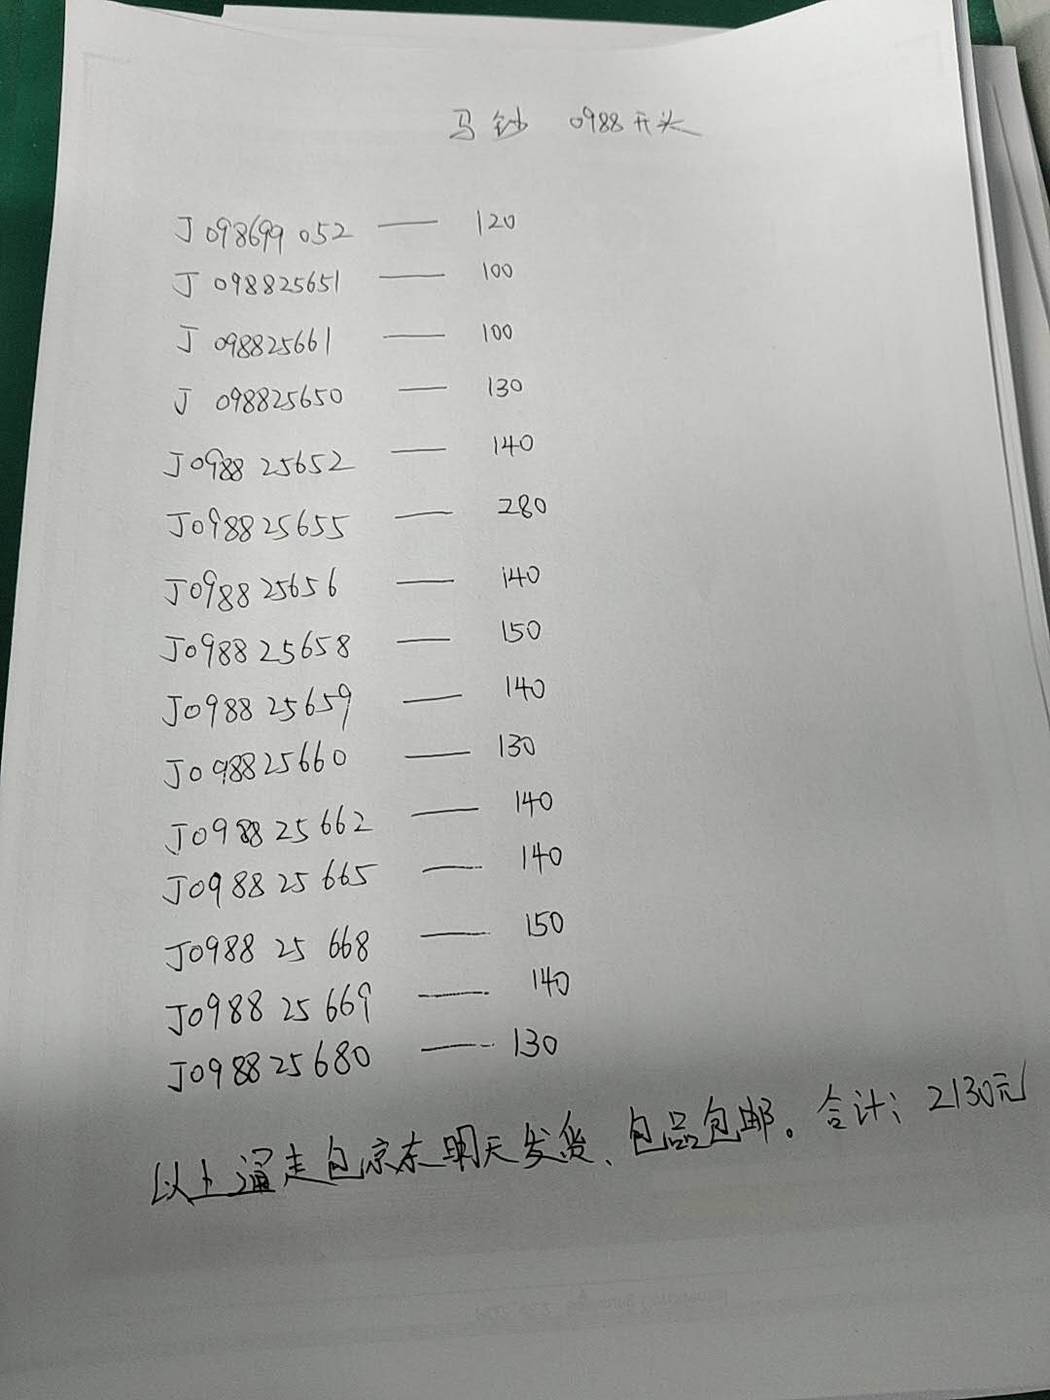 马钞 0988开头
J098699052 —— 120
J098825651 —— 100
J098825661 —— 100
J098825650 —— 130
J098825652 —— 140
J098825655 —— 280
J098825656 —— 140
J098825658 —— 150
J098825659 —— 140
J098825660 —— 130
J098825662 —— 140
J098825665 —— 140
J098825668 —— 150
J098825669 —— 140
J098825680 —— 130
以上通走包京东明天发货、包品包邮。合计：2130元